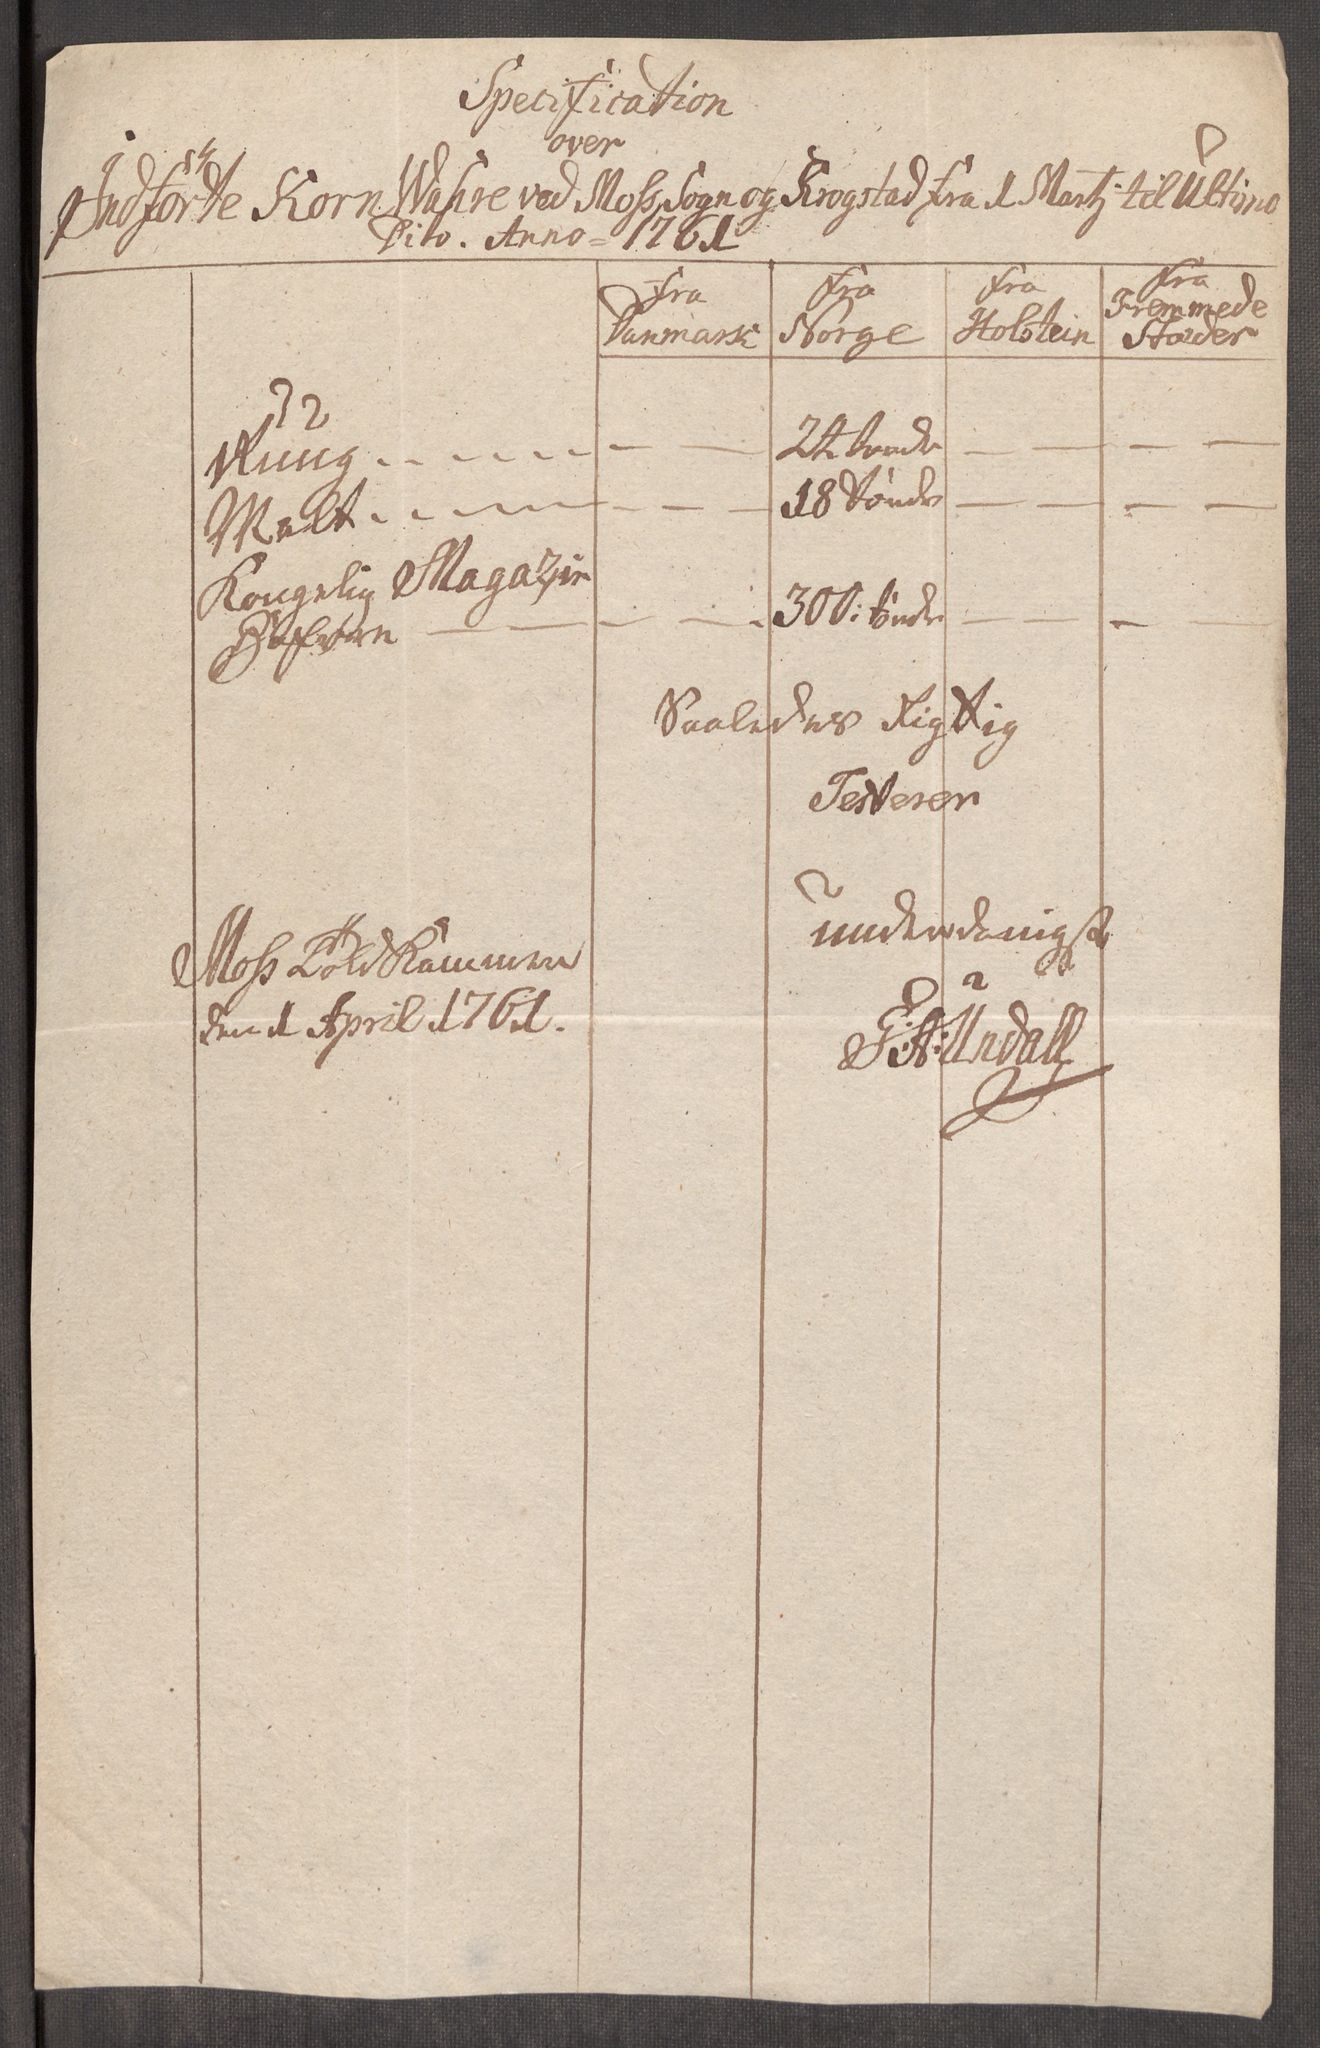 Specification
over
Indförte Korn Wahre ved Moss, Sogn og Krogstad fra 1 Martj til Ultimo
Dito. Anno = 1761
fra Danmark fra Norge fra Holstein fra Fremmede Stæder
Rüug 24 tønde
Malt 18 tønde
Kongelig Magazin
Hafvern 300: tønde
Saaledes Rigtig
Testerer
underdanigst
Moss Told Kammer
den 1 April 1761.
G: A: Undall